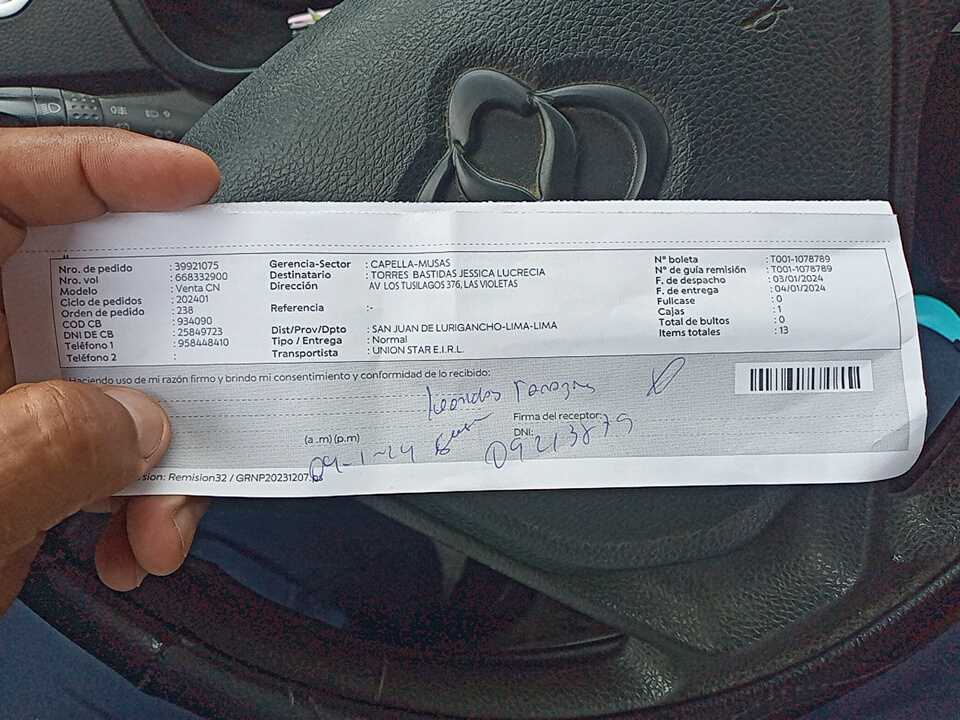 Nro. de pedido : 39921075
Nro. vol : 668332900
Modelo : Venta CN
Ciclo de pedidos : 202401
Orden de pedido : 238
COD CB : 934090
DNI DE CB : 25849723
Teléfono 1 : 958448410
Teléfono 2 :
Gerencia-Sector : CAPELLA-MUSAS
Destinatario : TORRES BASTIDAS JESSICA LUCRECIA
Dirección AV LOS TUSILAGOS 376, LAS VIOLETAS
Referencia :-
Dist/Prov/Dpto : SAN JUAN DE LURIGANCHO-LIMA-LIMA
Tipo / Entrega : Normal
Transportista : UNION STAR E.I.R.L.
N° boleta : T001-1078789
N° de guía remisión : T001-1078789
F. de despacho : 03/01/2024
F. de entrega : 04/01/2024
Fullcase : 0
Cajas : 1
Total de bultos : 0
Items totales : 13
Haciendo uso de mi razón firmo y brindo mi consentimiento y conformidad de lo recibido:
(a .m) (p.m)
Firma del receptor:
DNI: 09213879
04-1-24
sion: Remision32 / GRNP20231207.